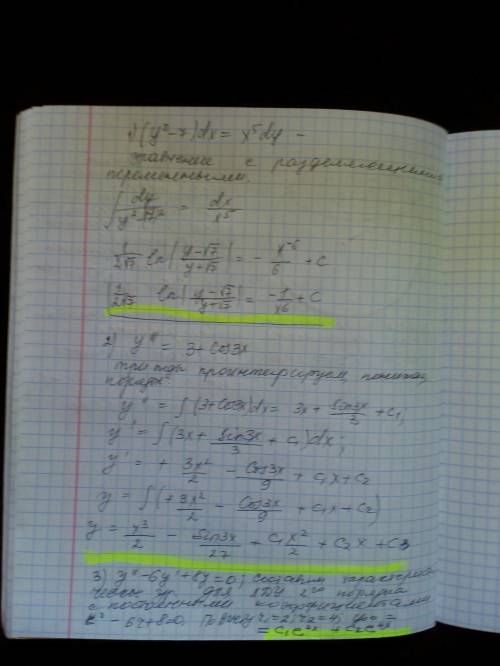 1) (y²-7)dx = x⁵dy -
уравнение с разделяющимися
переменными.
∫ dy/(y²-√7²) = dx/x⁵
1/(2√7) ln|(y-√7)/(y+√7)| = - x⁻⁶/6 + C
1/(2√7) ln|(y-√7)/(y+√7)| = -1/x⁶ + C
2) y''' = 3+cos3x
трижды проинтегрируем, понижая
порядок:
y'' = ∫(3+cos3x)dx = 3x + sin3x/3 + C₁,
y' = ∫(3x + sin3x/3 + C₁)dx;
y' = + 3x²/2 - cos3x/9 + C₁x + C₂
y = ∫(+ 3x²/2 - cos3x/9 + C₁x + C₂)
y = x³/2 - sin3x/27 + C₁x²/2 + C₂x + C3
3) y'' - 6y' + 8y = 0; составим характерис
порядка
с постоянными коэффициентами